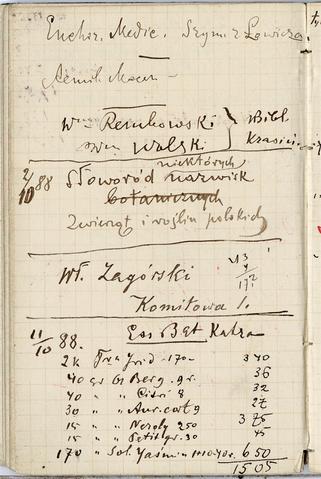 Enchir. Medic. Szym. z Łowicza
Aemil. Macer
Wny Rembowski
Bibl.
Krasiń.
2/10 88 Słoworód niektórych nazwisk
botanicznych
Zwierząt i roślin polskich
Wł. Zagórski
Komitowa 1.
11/10 88. Ess Bqt Katza
2 K Tra Jrid 170 340
40 gr Ol Berg. gr. 36
40 " " Citri 8 32
30 " " Aur. cort 9 27
15 " " Neroly 250 375
15 " " Petitgr. 30 45
170 " Sol. Yasmin 650
1505